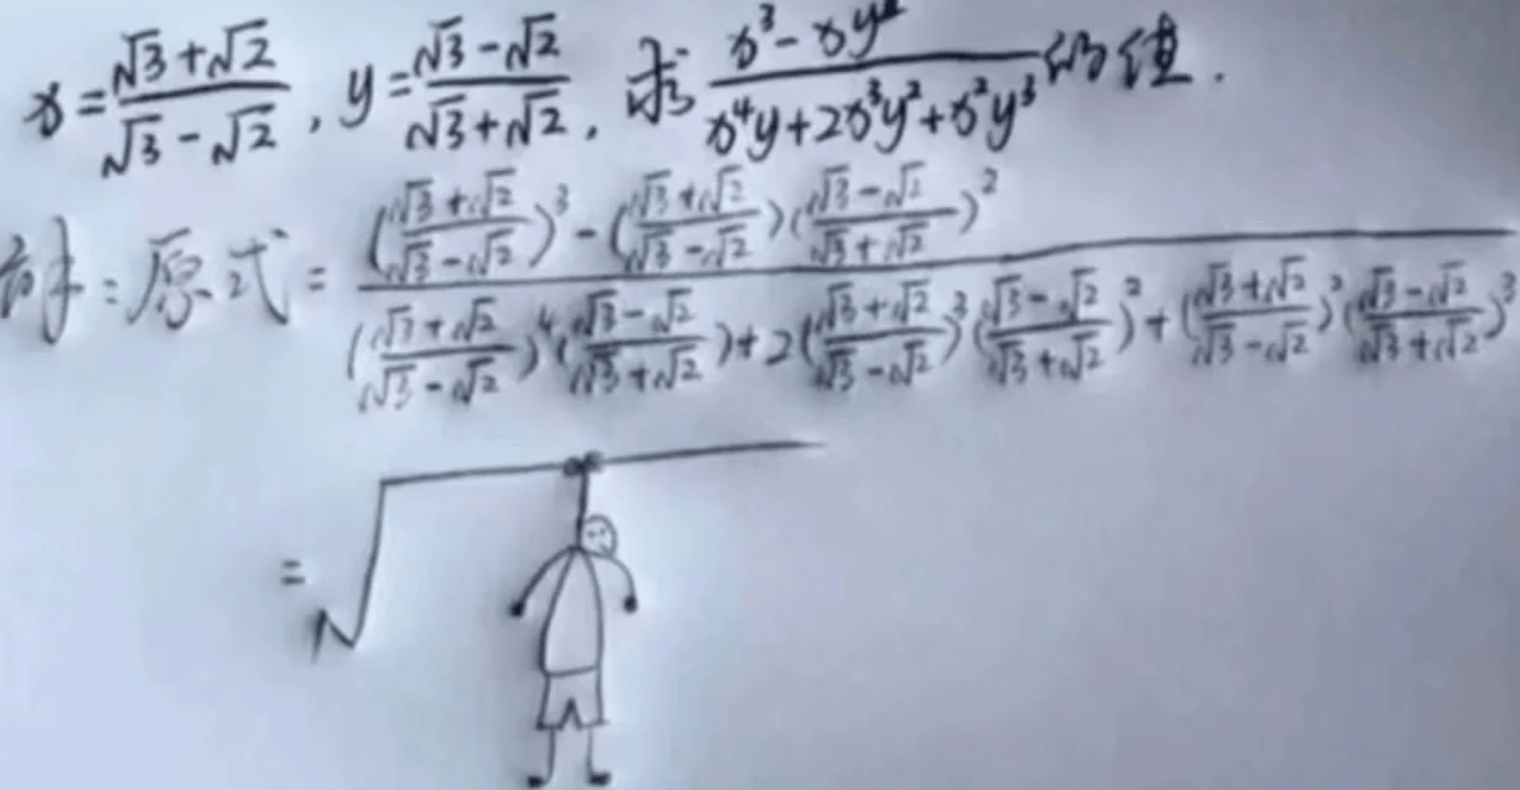 x=(√3+√2)/(√3-√2), y=(√3-√2)/(√3+√2), 求(x³-xy²)/(x⁴y+2x³y²+x²y³)的值.
解:原式=(((√3+√2)/(√3-√2))³-((√3+√2)/(√3-√2))((√3-√2)/(√3+√2))²)/(((√3+√2)/(√3-√2))⁴((√3-√2)/(√3+√2))+2((√3+√2)/(√3-√2))³((√3-√2)/(√3+√2))²+((√3+√2)/(√3-√2))²((√3-√2)/(√3+√2))³)
=√